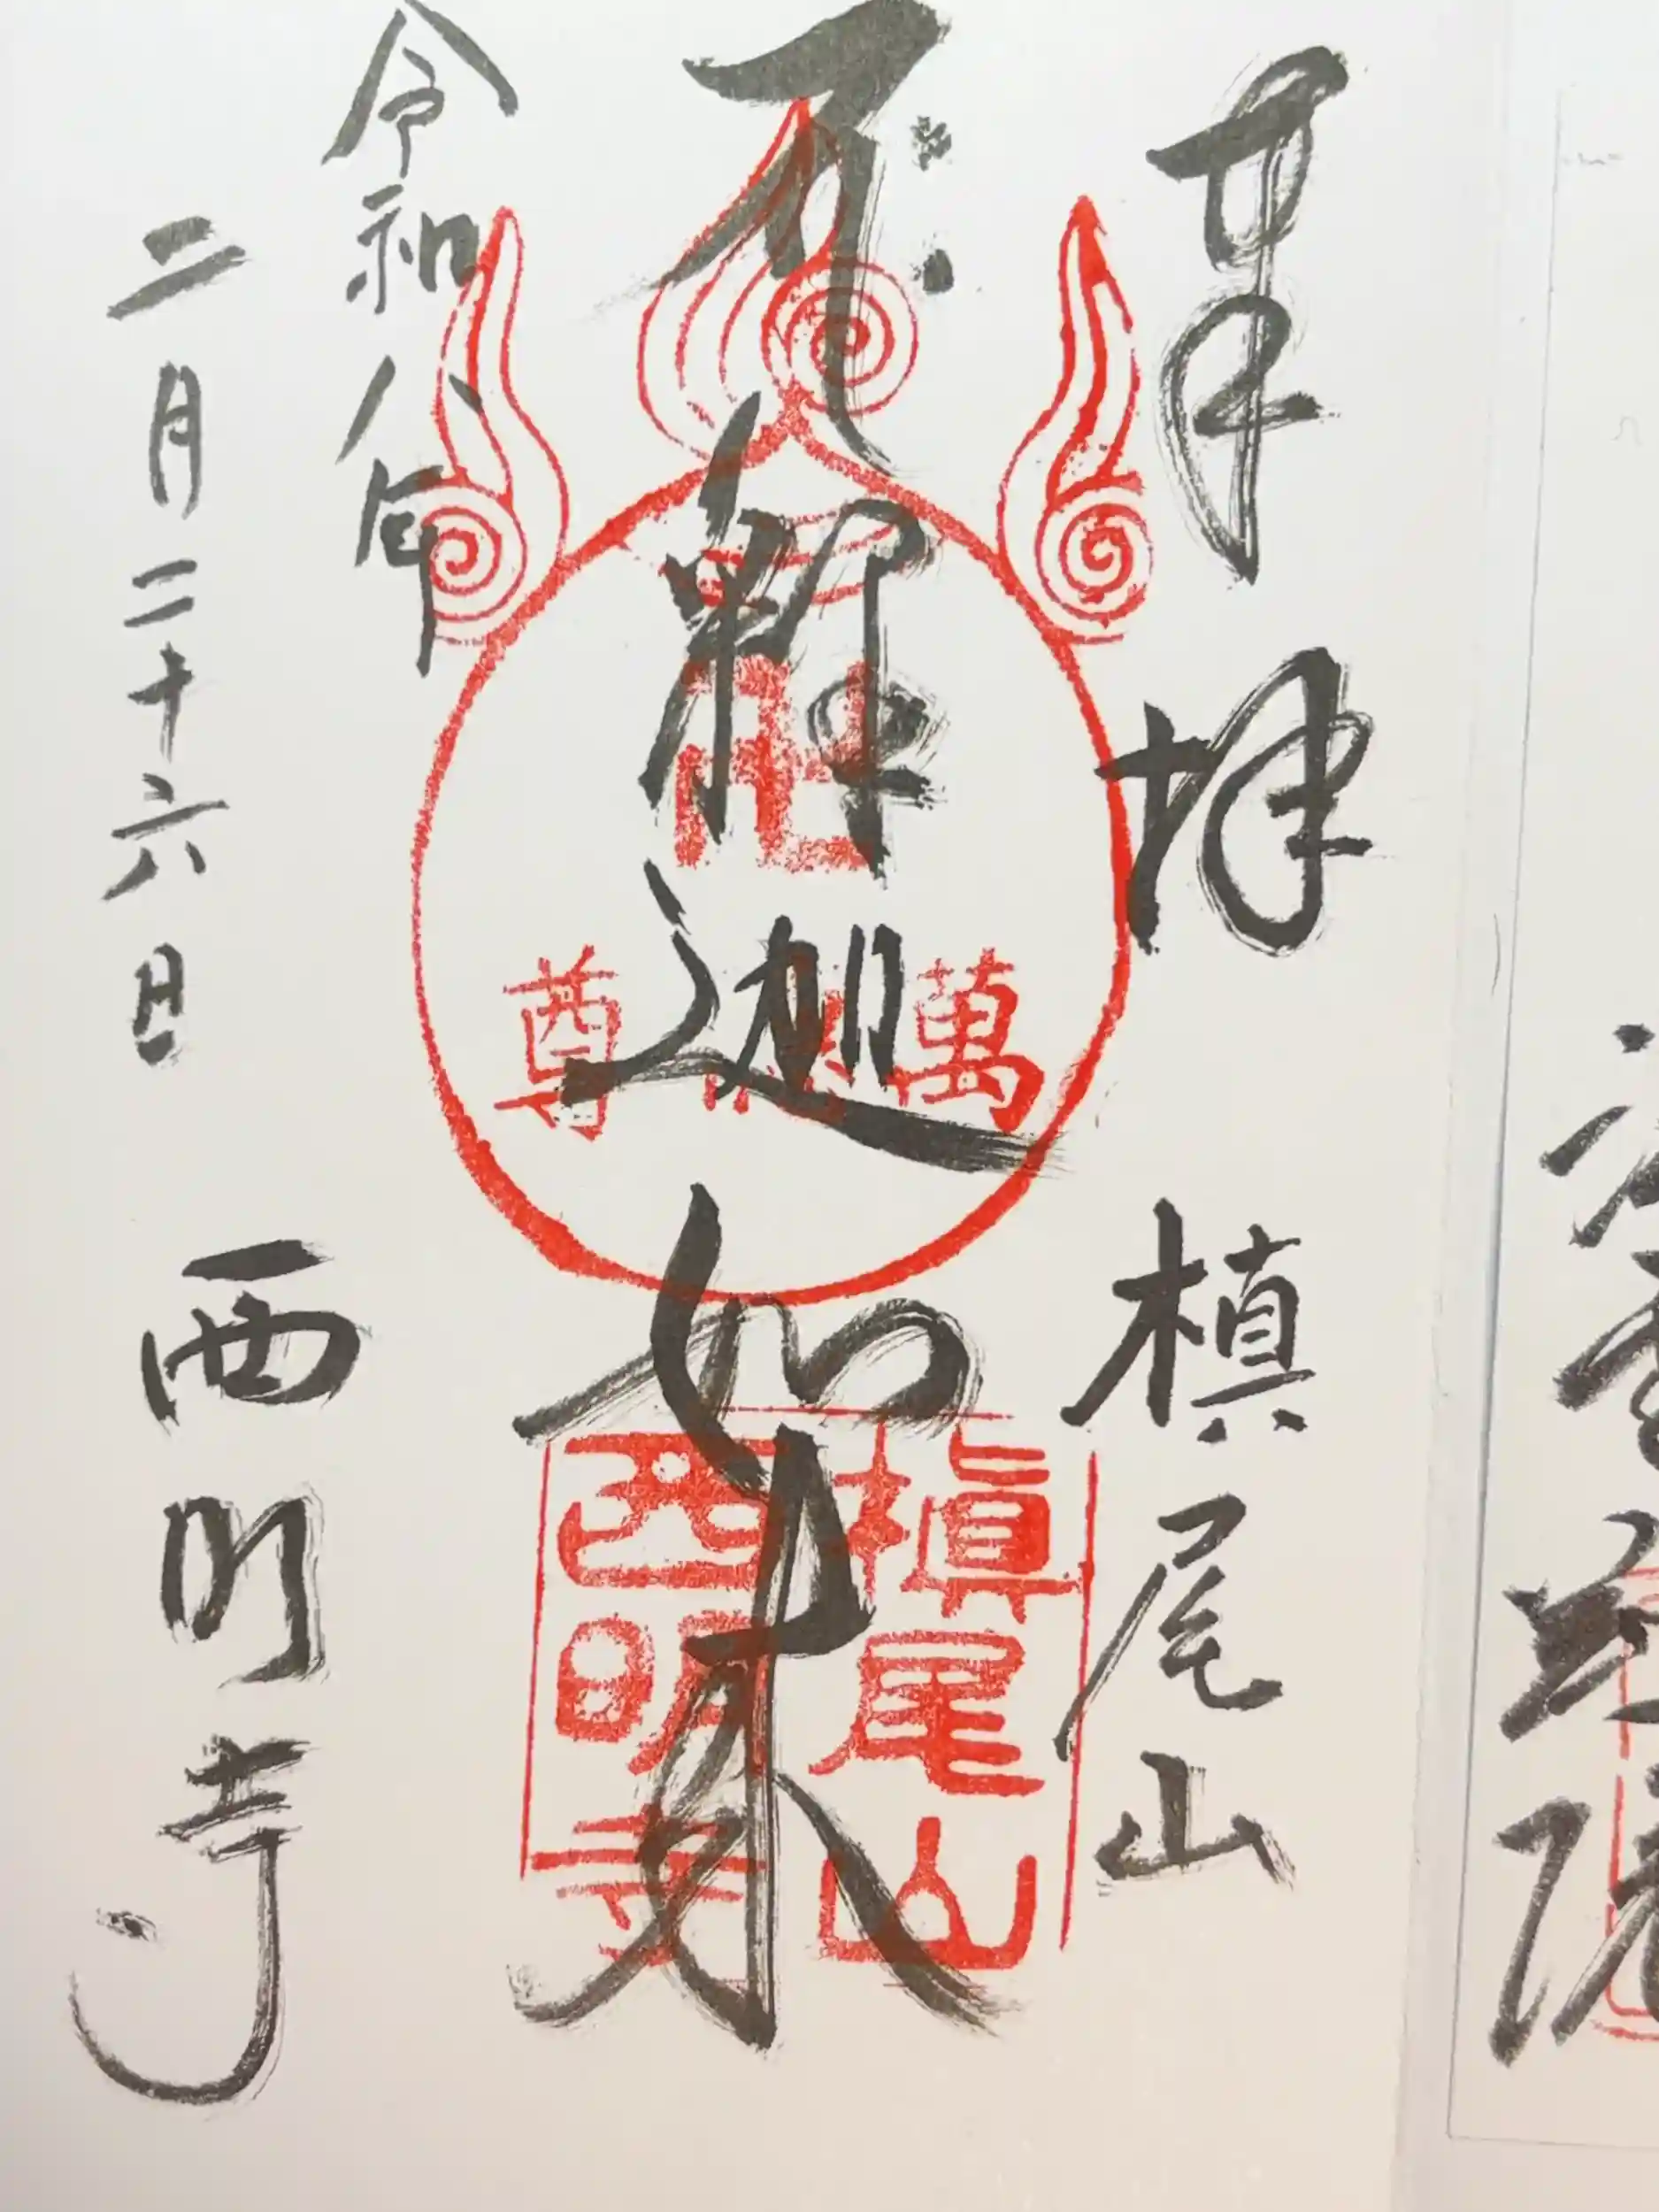 奉拝 槙尾山
釋迦如来
令和八年
二月二十六日 西明寺
卍
萬 尊
槇尾山
西明寺